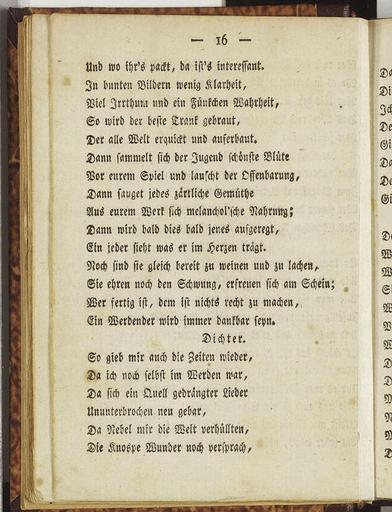 — 16 —
Und wo ihr's packt, da ist's interessant.
In bunten Bildern wenig Klarheit,
Viel Irrthum und ein Fünkchen Wahrheit,
So wird der beste Trank gebraut,
Der alle Welt erquickt und auferbaut.
Dann sammelt sich der Jugend schönste Blüte
Vor eurem Spiel und lauscht der Offenbarung,
Dann sauget jedes zärtliche Gemüthe
Aus eurem Werk sich melanchol'sche Nahrung;
Dann wird bald dies bald jenes aufgeregt,
Ein jeder sieht was er im Herzen trägt.
Noch sind sie gleich bereit zu weinen und zu lachen,
Sie ehren noch den Schwung, erfreuen sich am Schein;
Wer fertig ist, dem ist nichts recht zu machen,
Ein Werdender wird immer dankbar seyn.
Dichter.
So gieb mir auch die Zeiten wieder,
Da ich noch selbst im Werden war,
Da sich ein Quell gedrängter Lieder
Ununterbrochen neu gebar,
Da Nebel mir die Welt verhüllten,
Die Knospe Wunder noch versprach,